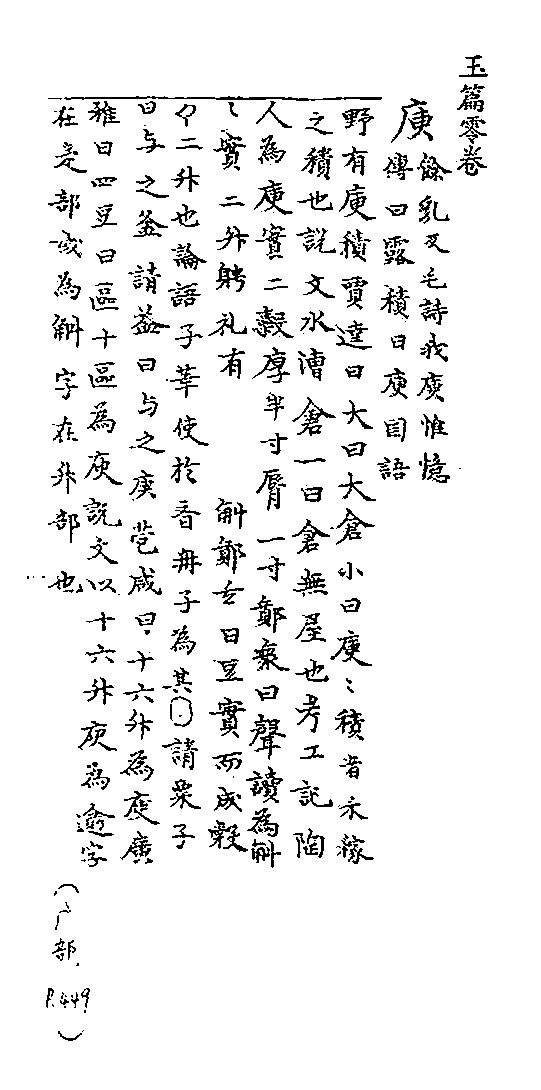 玉篇零卷
庾 餘乳反毛詩我庾惟憶
傳曰露積曰庾国語
野有庾積賈逵曰大曰大倉小曰庾〻積者禾稼
之積也說文水漕倉一曰倉無屋也考工記陶
人為庾實二觳厚半寸脣一寸鄭衆曰聲讀為斛
〻實二升聘礼有 斛鄭玄曰豆實而成觳
二升也論語子華使於 冉子為其 請粟子
曰与之釜請益曰与之庾苞咸曰十六升為庾廣
雅曰四豆曰區十區為庾說文以十六升庾為 字
在 部或為斞字在升部也
(广部 P.449)